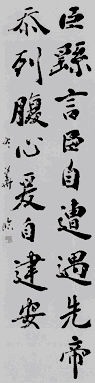 臣繇言臣自遭遇先帝
忝列腹心爰自建安